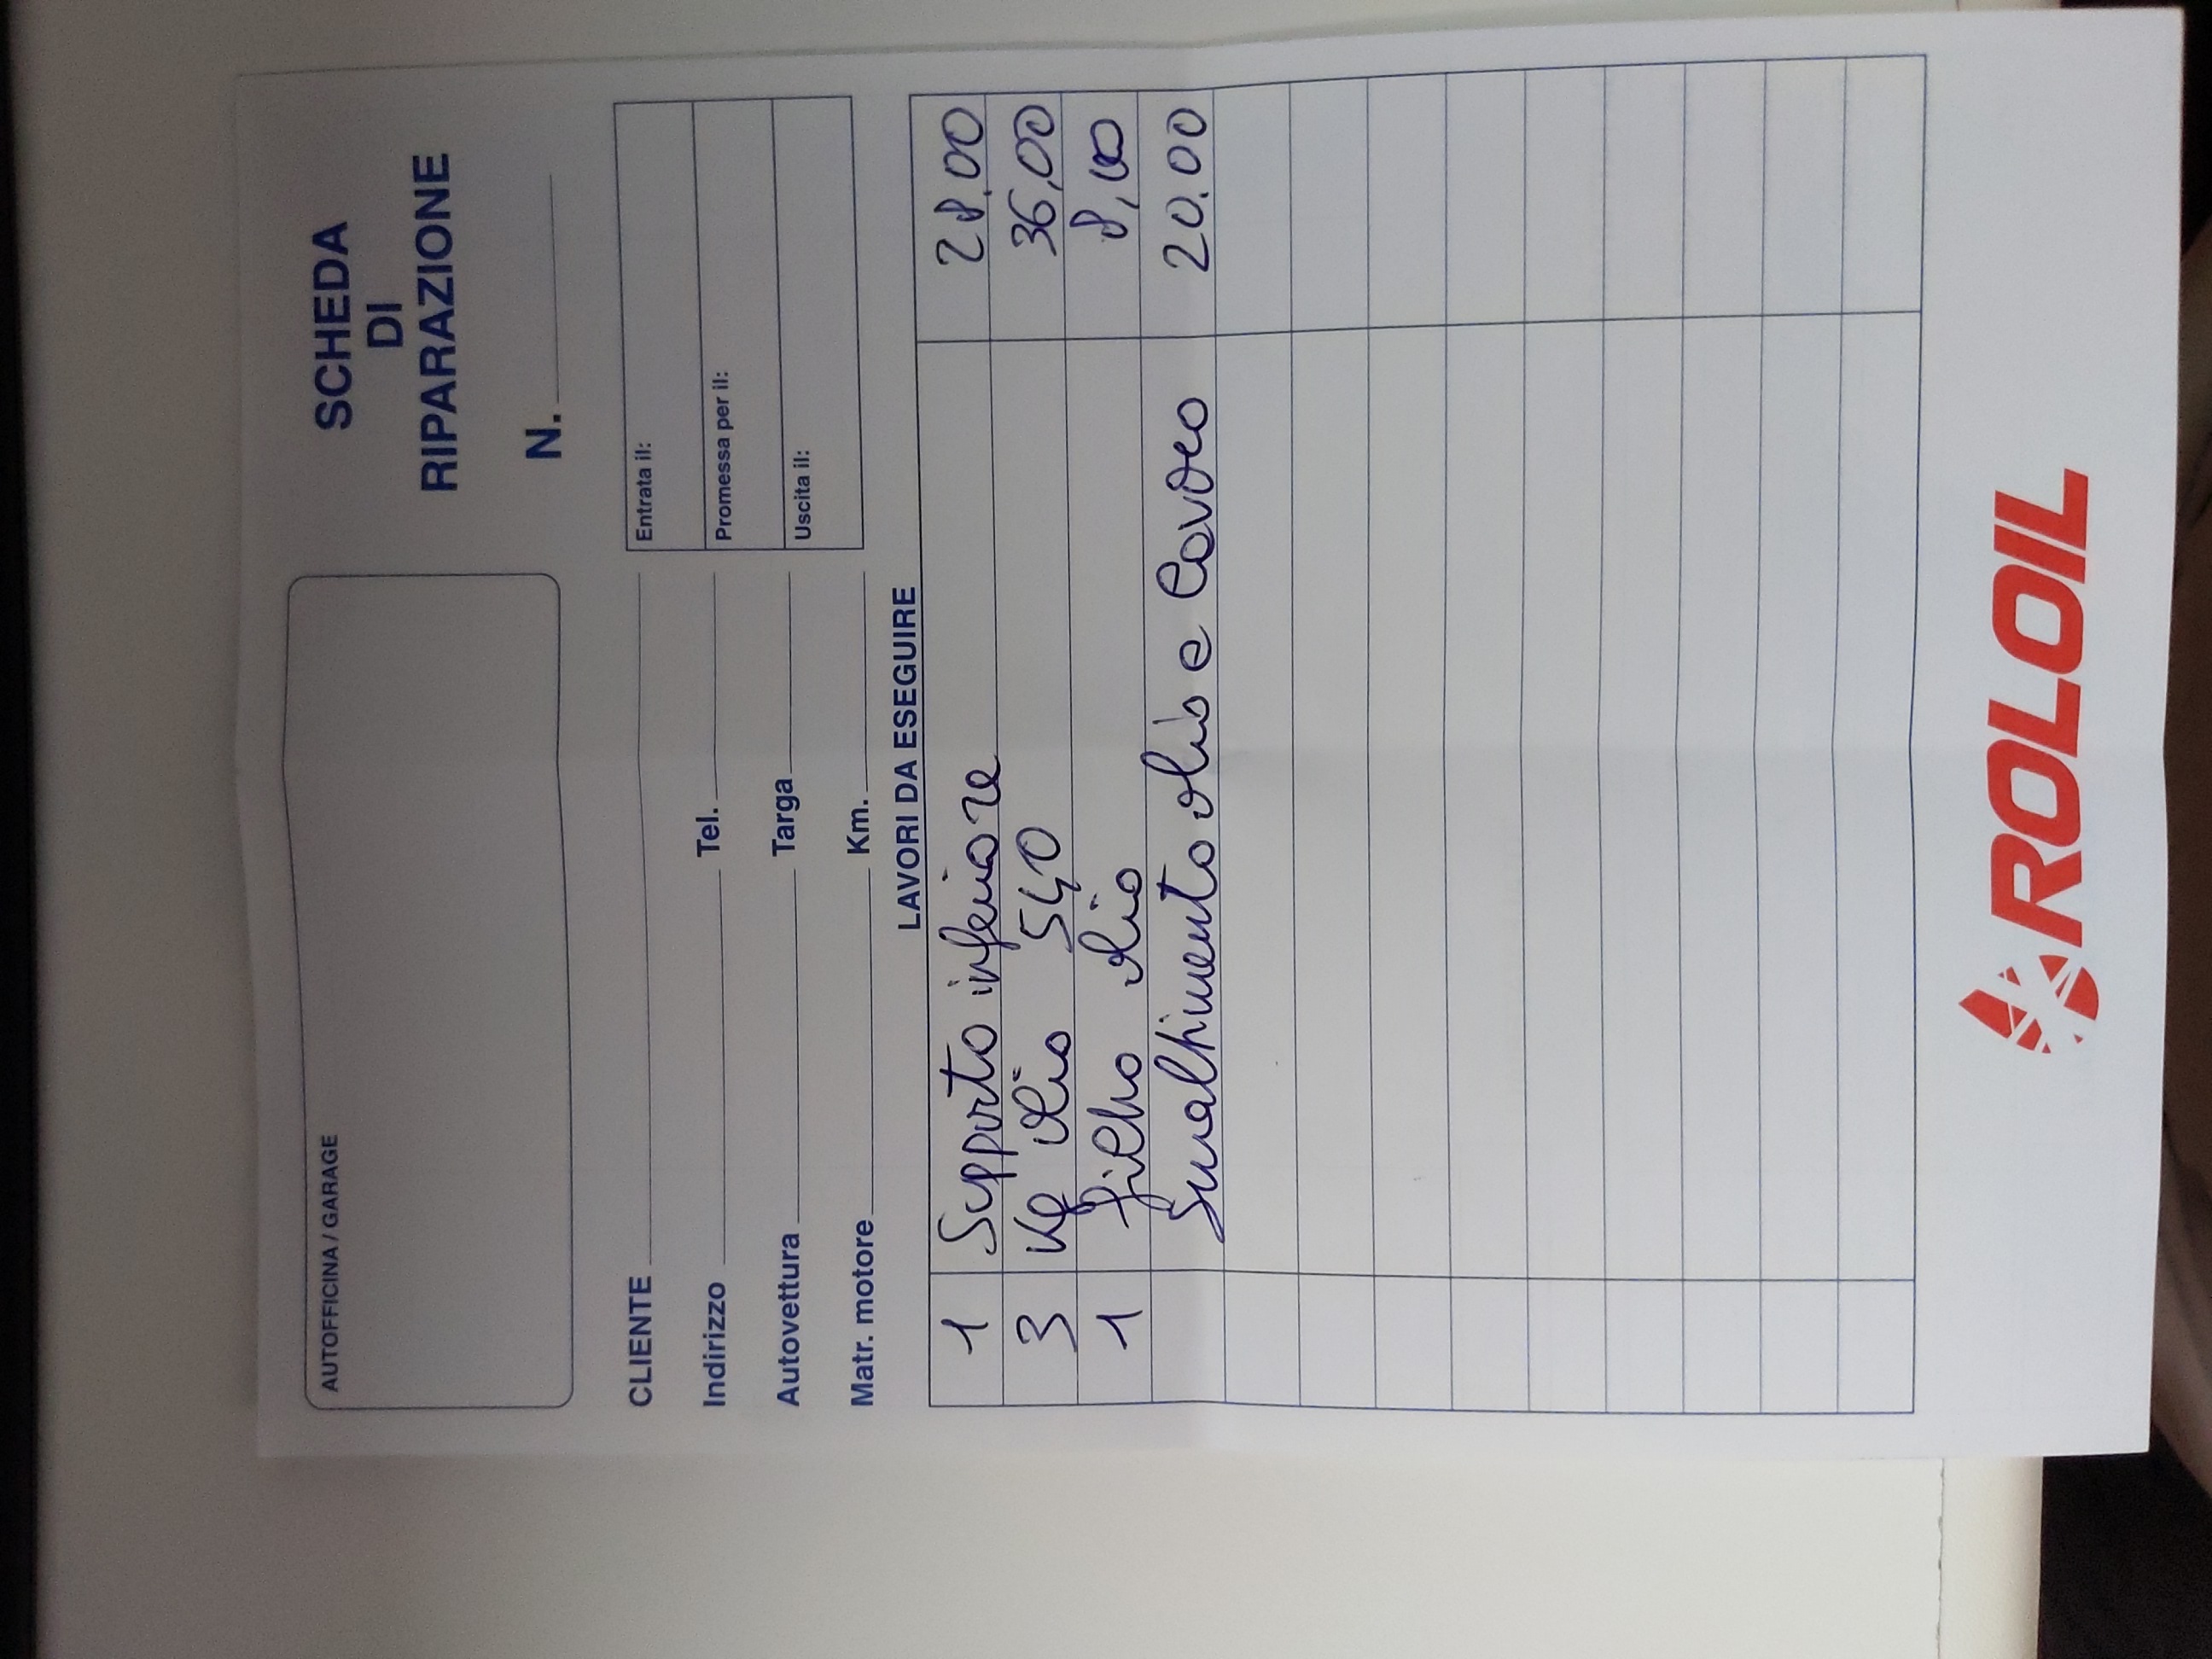 AUTOFFICINA / GARAGE
SCHEDA
DI
RIPARAZIONE
N.
CLIENTE
Indirizzo Tel.
Autovettura Targa
Matr. motore Km.
Entrata il:
Promessa per il:
Uscita il:
LAVORI DA ESEGUIRE
1 Supporto inferiore 28.00
3 Kg olio 540 36,00
1 filtro olio 8,00
Smaltimento olio e lavoro 20.00
ROLOIL